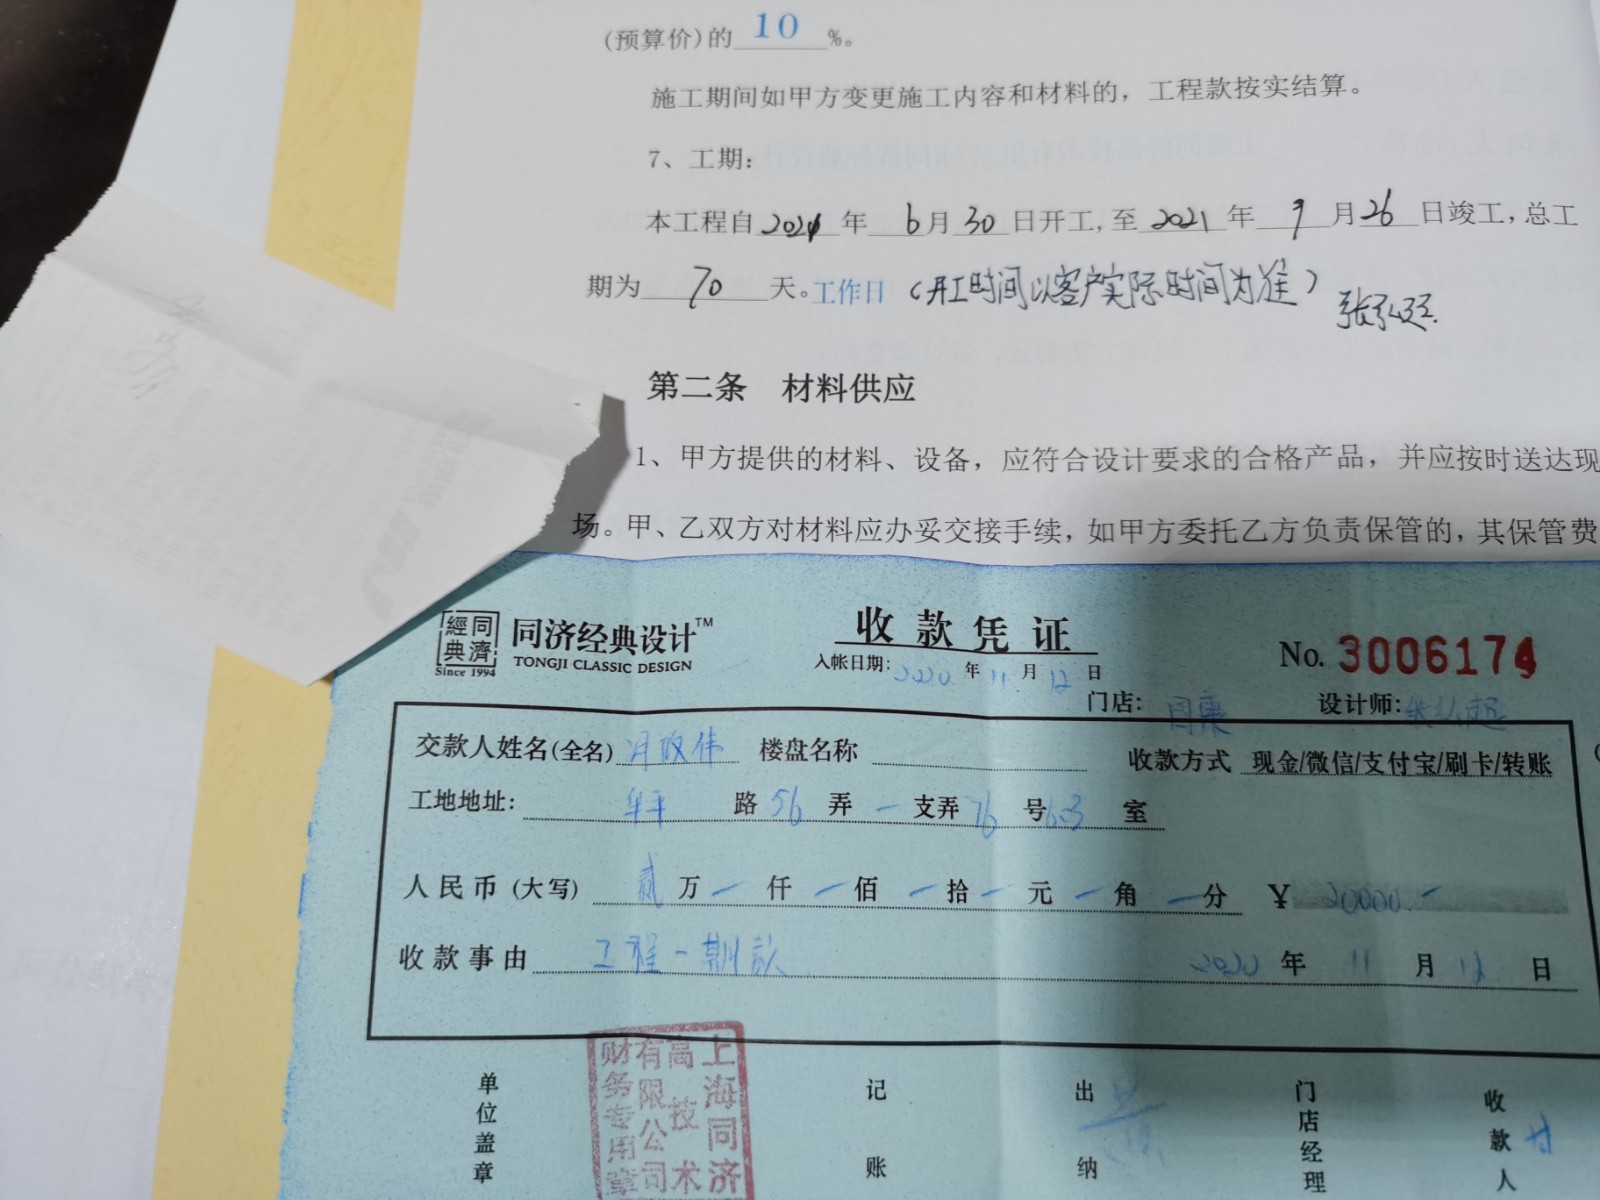 (预算价)的 10 %。
施工期间如甲方变更施工内容和材料的，工程款按实结算。
7、工期：
本工程自 2021 年 6 月 30 日开工，至 2021 年 9 月 26 日竣工，总工
期为 70 天。工作日（开工时间以客户实际时间为准）
第二条 材料供应
1、甲方提供的材料、设备，应符合设计要求的合格产品，并应按时送达现
场。甲、乙双方对材料应办妥交接手续，如甲方委托乙方负责保管的，其保管费
經典同濟
Since 1994
同济经典设计™
TONGJI CLASSIC DESIGN
收款凭证
No. 3006174
入帐日期： 2020 年 11 月 12 日
门店： 设计师：
交款人姓名(全名) 楼盘名称 收款方式 现金/微信/支付宝/刷卡/转账
工地地址： 路 56 弄 一 支弄 76 号 603 室
人民币 (大写) 贰 万 一 仟 一 佰 一 拾 一 元 一 角 一 分 ¥ 20000.-
收款事由 工程一期款 2020 年 11 月 12 日
单位盖章
上海同济
高技术
有限公司
财务专用章
记账
出纳
门店经理
收款人